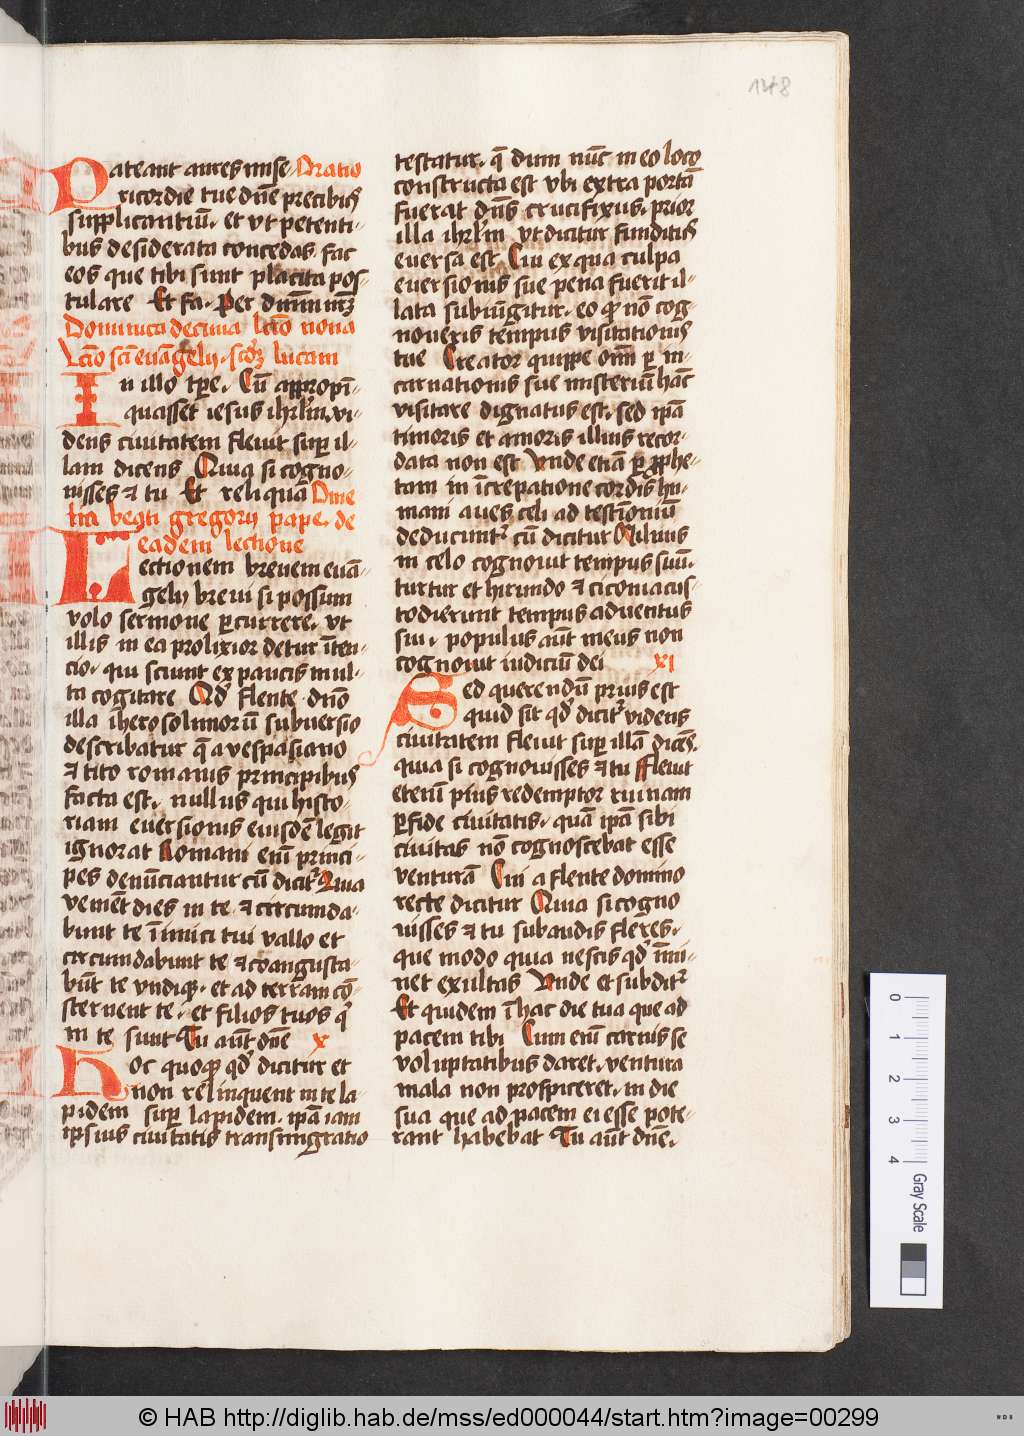 148
Pateant aures mise Oratio
ricordie tue dn̄e precibus
supplicantiū. et vt petenti-
bus desiderata concedas. fac
eos que tibi sunt placita pos-
tulare Et fa. Per
Dominica decima lcō nona
Lcō sci evāgelij. scdʒ lucam
In illo tpe. Cū appropī-
quasset iesus ihrlm̄. vi-
dens civitatem flevit sup il-
lam dicens Quia si cogno-
visses ⁊ tu Et reliqua Ome-
lia beati gregorij pape. de
eadem lectione
Lectionem brevem evā-
gelij brevi si possum
volo sermone ꝑcurrere. vt
illis in ea prolixior detur īten-
cio. qui sciunt ex paucis mul-
ta cogitare Qd̓ flente dn̄o
illa iherosolimorū subversio
describatur q̄ a vespasiano
⁊ tito romanis principibus
facta est. nullus qui histo-
riam eversionis eiusdē legit
ignorat Romani enī princi-
pes denūciantur cū dicit᷑ Quia
venient dies in te. ⁊ circumda-
bunt te īimici tui vallo et
circumdabunt te ⁊ coangusta-
būt te vndiqꝫ. et ad terram cō-
sternent te. et filios tuos q̓
in te sunt Tu aūt dn̄e x
Hoc quoqꝫ qd̓ dicitur et
non relinquent in te la-
pidem sup lapidem. ipā iam
ipsius civitatis transmigratio
testatur. q̄ dum nūc in eo loco
constructa est vbi extra portā
fuerat dn̄s crucifixus. prior
illa ihrlm̄ vt dicitur funditus
eversa est Cui ex qua culpa
eversionis sue pena fuerit il-
lata subiūgitur. eo ꝙ nō cog-
noveris tempus visitationis
tue Creator quippe om̄ ꝑ in-
carnationis sue misteriū hāc
visitare dignatus est. sed ipā
timoris et amoris illius recor-
data non est Vnde etiā ꝑ ꝓphe-
tam in īcrepatione cordis hu-
mani aves celi ad testimoniū
deducunt᷑ cū dicitur Milvus
in celo cognovit tempus suū.
turtur et hirundo ⁊ ciconia cus-
todierunt tempus adventus
sui. populus aūt meus non
cognovit iudiciū dei xi
Sed querendū prius est
quid sit qd̓ dicit᷑ videns
civitatem flevit sup illā dicēs.
quia si cognovisses ⁊ tu Flevit
etenī pius redemptor ruinam
ꝑfide civitatis. quā ipā sibi
civitas nō cognoscebat esse
venturā Cui a flente domino
recte dicitur Quia si cogno
visses ⁊ tu subaudis fleres.
que modo quia nescis qd̓ īmi-
net exultas Vnde et subdit᷑
Et quidem ī hac die tua que ad
pacem tibi Cum enī carnis se
voluptatibus daret. ventura
mala non prospiceret. in die
sua que ad pacem ei esse pote-
rant habebat Tu aūt dn̄e.
0 1 2 3 4 Gray Scale
© HAB http://diglib.hab.de/mss/ed000044/start.htm?image=00299